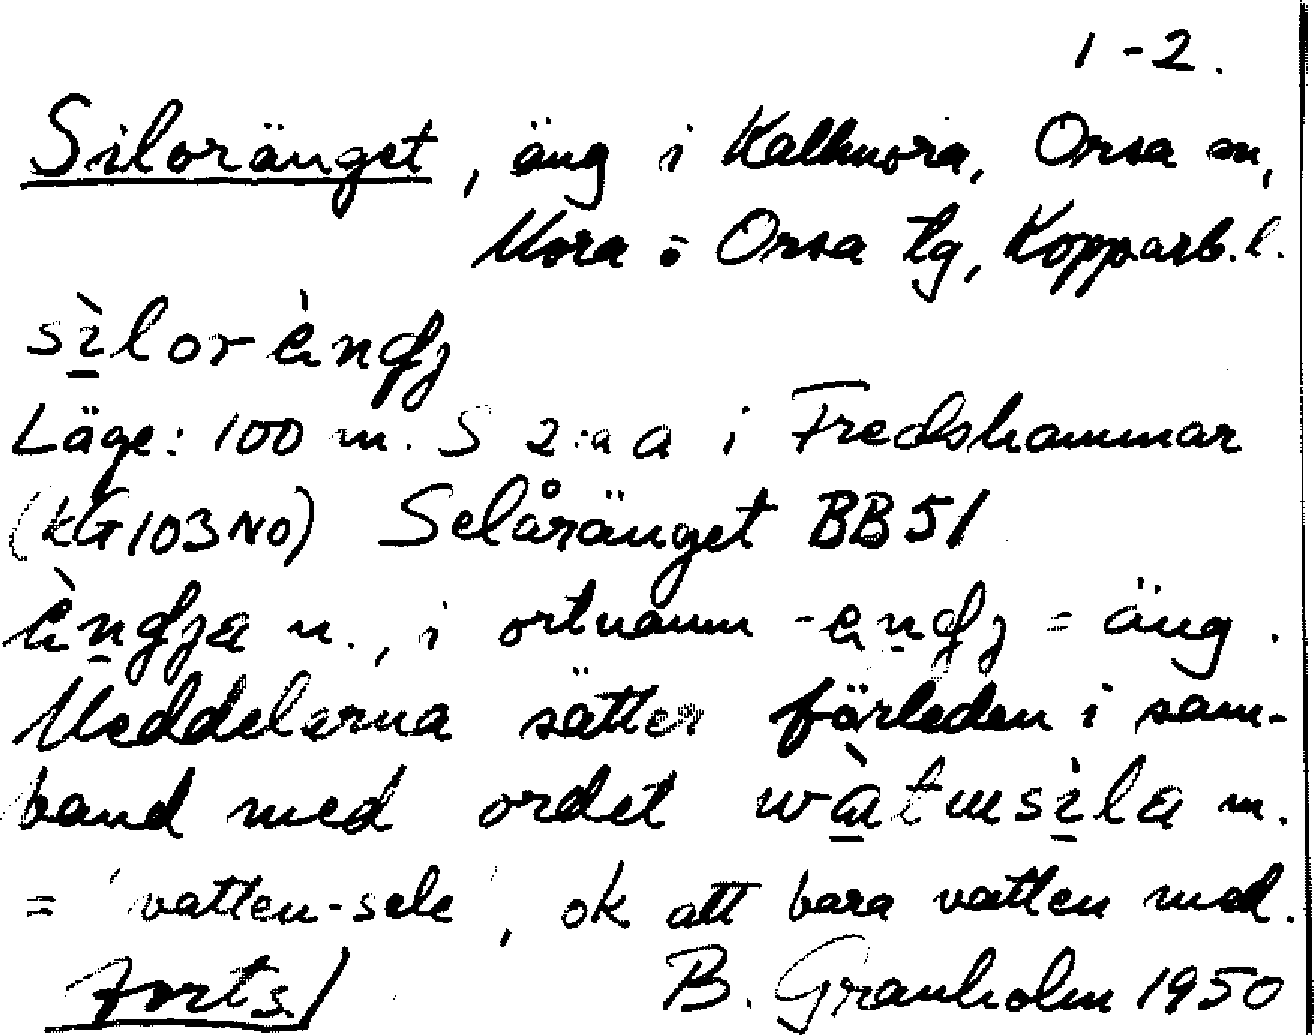 1-2.
Siloränget, äng i Kallmora, Orsa sn,
Mora o Orsa tg, Kopparb.l.
sìlorèndʒ
Läge: 100 m. S 2:a a i Fredshammar
(KG103NO) Selåränget BB51
èndʒa n., i ortnamn -endʒ = äng.
Meddelarna sätter förleden i sam-
band med ordet wàtusìla m.
= 'vatten-sele', ok att bara vatten med.
Forts./ B. Granholm 1950